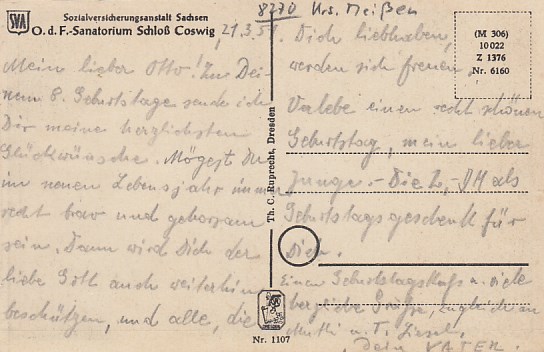 SVA
Sozialversicherungsanstalt Sachsen
O. d. F.-Sanatorium Schloß Coswig
8270 Krs. Meißen
21.3.51.
Mein lieber Otto! Zu Dei-
nem 8. Geburtstage sende ich
Dir meine herzlichsten
Glückwünsche. Mögest Du
im neuen Lebensjahr immer
recht brav und gehorsam
sein. Dann wird Dich der
liebe Gott auch weiterhin
beschützen, und alle, die
Dich liebhaben,
werden sich freuen.
Verlebe einen recht schönen
Geburtstag, mein lieber
Junge. - Die 2,- DM als
Geburtstagsgeschenk für
Dich.
Einen Geburtstagskuß u. viele
herzliche Grüße, zugleich an
Mutti u. T. Liesel,
Dein VATER.
(M 306)
10 022
Z 1376
Nr. 6160
Th. C. Ruprecht, Dresden
Nr. 1107